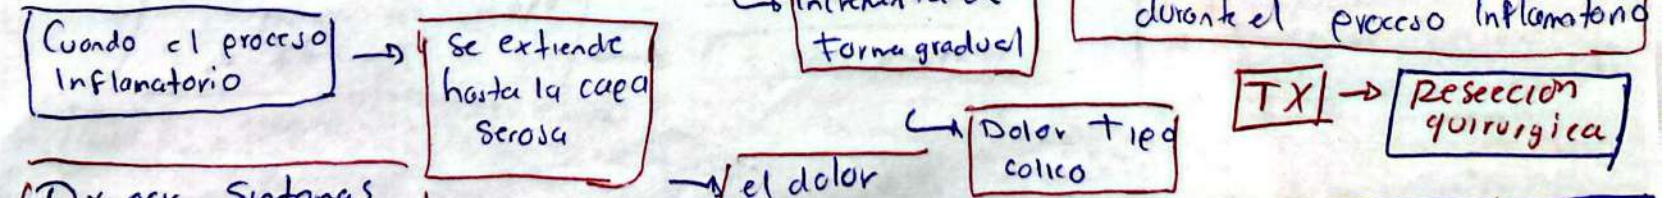 Cuando el proceso
Inflamatorio
se extiende
hasta la capa
serosa
forma gradual
durante el proceso Inflamatorio
TX
Resección
quirurgica
Dolor tipo
colico
el dolor
Sintomas